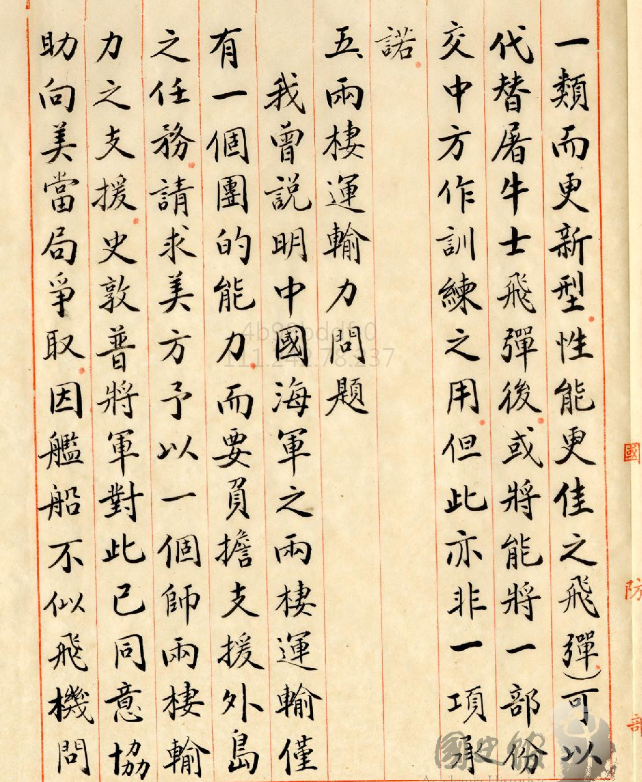 一類而更新型性能更佳之飛彈)可以
代替屠牛士飛彈後或將能將一部份
交中方作訓練之用但此亦非一項承
諾
五兩棲運輸力問題
我曾説明中國海軍之兩棲運輸僅
有一個團的能力而要負擔支援外島
之任務請求美方予以一個師兩棲輸
力之支援史敦普將軍對此已同意協
助向美當局爭取因艦船不似飛機問
國防部
國史館